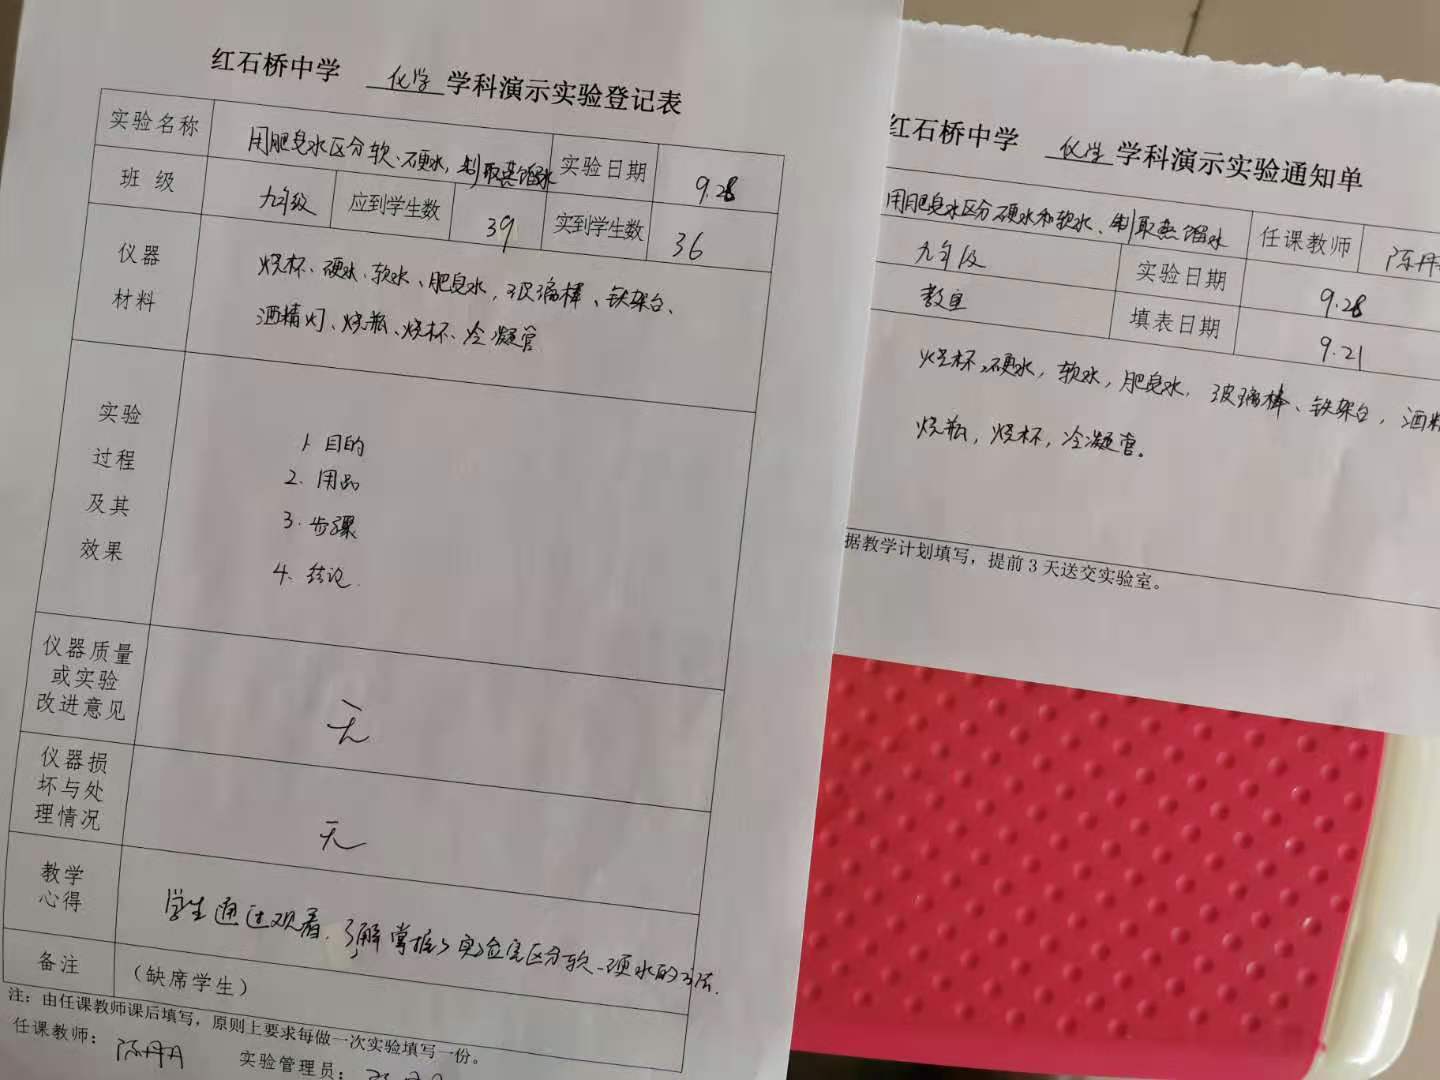 红石桥中学 化学 学科演示实验登记表
实验名称 用肥皂水区分软、硬水,制取蒸馏水 实验日期 9.28
班级 九年级 应到学生数 39 实到学生数 36
仪器
材料
烧杯、硬水、软水、肥皂水,玻璃棒、铁架台、
酒精灯、烧瓶、烧杯、冷凝管
实验
过程
及其
效果
1. 目的
2. 用品
3. 步骤
4. 结论.
仪器质量
或实验
改进意见
无
仪器损
坏与处
理情况
无
教学
心得
学生通过观看,了解掌握了实验室区分软、硬水的方法.
备注 (缺席学生)
注:由任课教师课后填写,原则上要求每做一次实验填写一份。
任课教师: 陈丹丹 实验管理员:
红石桥中学 化学 学科演示实验通知单
用肥皂水区分硬水和软水、制取蒸馏水 任课教师 陈丹
九年级 实验日期 9.28
教室 填表日期 9.21
烧杯,硬水,软水,肥皂水,玻璃棒、铁架台,酒精
烧瓶,烧杯,冷凝管。
据教学计划填写,提前3天送交实验室。